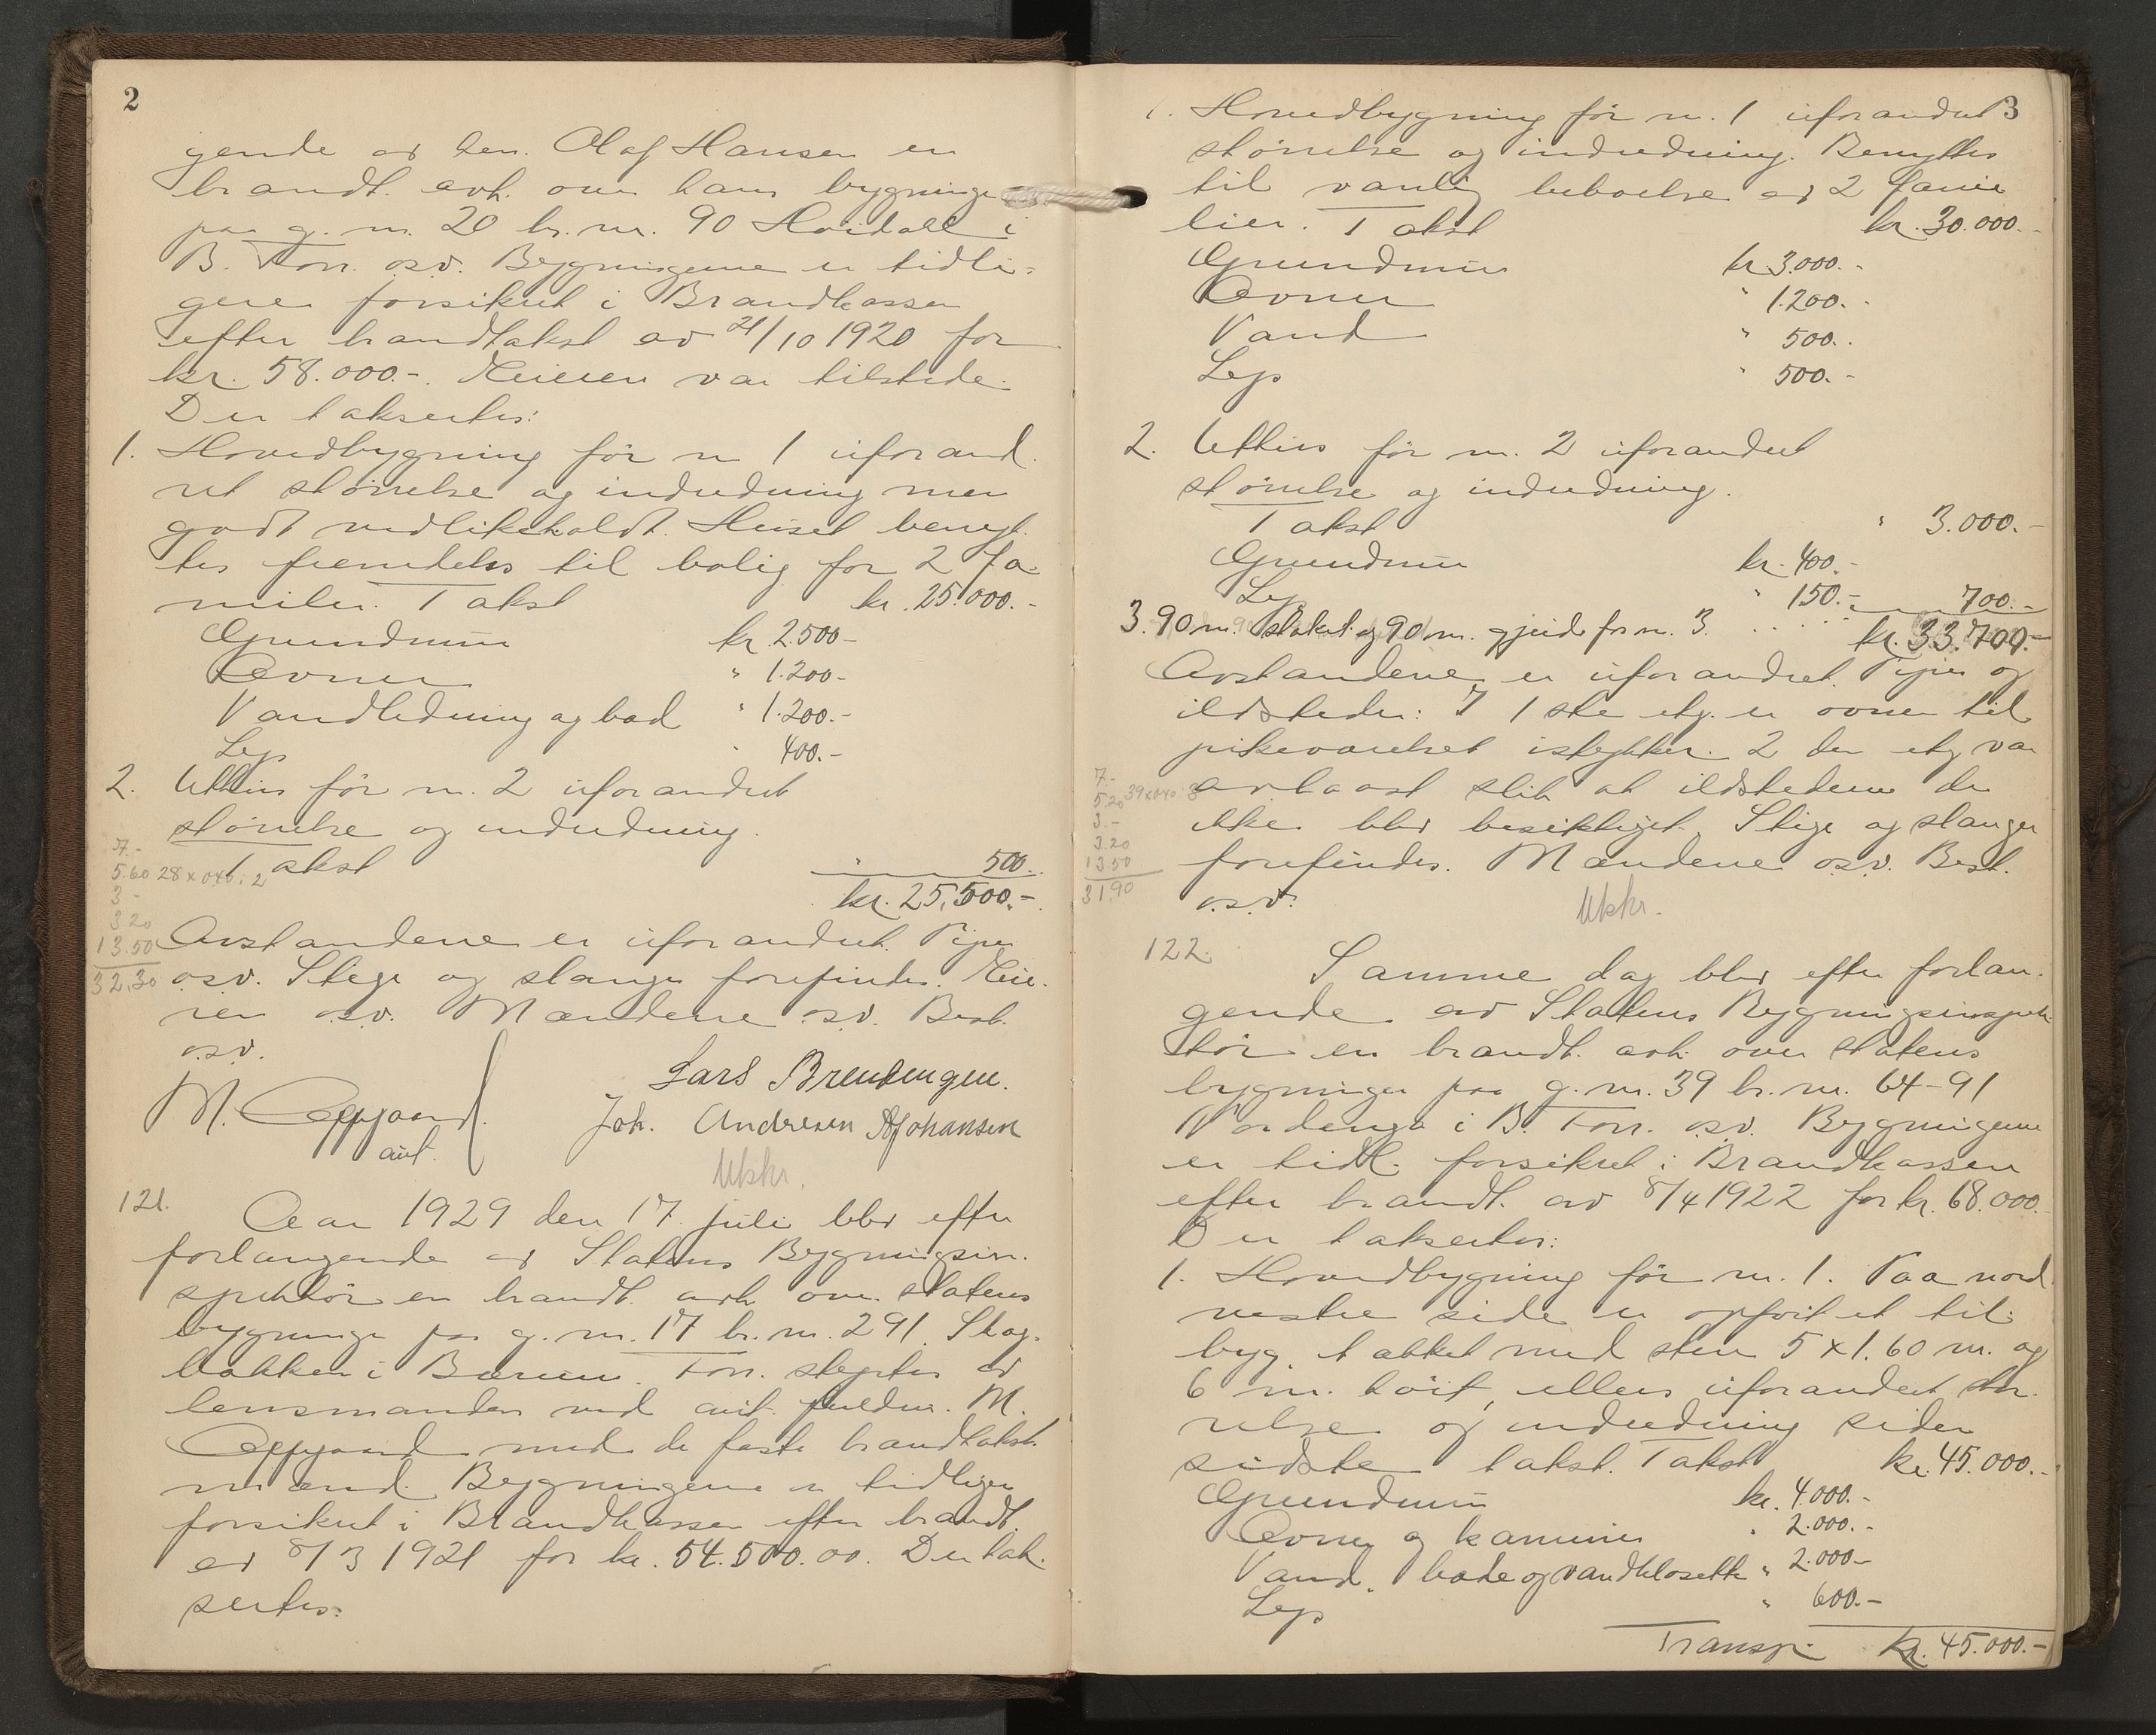 2
gende av hr. Olaf Hansen en
brandt. avh. over hans bygninger
paa g. nr. 20 br. nr. 90 Hoidall i
B. Forr. o.s.v. Bygningerne er tidli-
gere forsikret i Brandkassen
efter brandtakst av 21/10 1920 for
kr. 58.000.-. Eieren var tilstede.
Der taksertes:
1. Hovedbygning før nr 1 uforand-
ret størrelse og indredning men
godt vedlikeholdt. Huset benyt-
tes fremdeles til bolig for 2 fa-
milier. Takst kr. 25.000.-
Grundmur kr. 2.500-
Ovner " 1.200-
Vandledning og bad " 1.200.-
Lyn " 400.-
2. Uthus før nr. 2 uforandret
størrelse og indredning.
Takst " 500.
kr. 25,500.-
7.-
5.60 28 x 040 : 2
3 -
3.20
13.50
32,30
Avstandene er uforandret. Piper
o.s.v. Stige og stanger forefindes. Eie-
ren o.s.v. Mændene o.s.v. Best.
o.s.v.
M. Oppgaard Lars Brendengen.
aut. Joh. Andresen AJohansen
Utskr.
121. Aar 1929 den 17. juli blev efter
forlangende av Statens Bygningsin-
spektör en brandt. avh. over statens
bygninger paa g. nr. 17 br. nr. 291 Skog-
bakken i Bærum. Forr. styrtes av
lensmanden ved aut. fuldm. M.
Oppgaard med de faste brandtakst-
mænd. Bygningerne er tidligere
forsikret i Brandkassen efter brandt.
av 8/3 1921 for kr. 54.500.00. Der tak-
sertes:
3
1. Hovedbygning før nr. 1 uforandret
størrelse og indredning. Benyttes
til vanlig beboelse av 2 fami-
lier. Takst kr. 30.000.-
Grundmur kr. 3.000.-
Ovner " 1.200.-
Vand " 500.-
Lys " 500.-
2. Uthus før nr. 2 uforandret
størrelse og indredning.
Takst " 3.000.-
Grundmur kr. 400.-
Lys " 150.-
3. 90 m. stakit og 90 m. gjerde før nr. 3. . . . . . 700.-
kr. 33.700.-
Avstandene er uforandret. Piper og
ildsteder: I 1ste etg. er ovnen til
pikeværelset istykker. 2den etg var
avlaast slik at ildstederne der
ikke blev besiktiget. Stige og stanger
forefindes. Mændene o.s.v. Best.
o.s.v.
7.-
5.20 39 x 040
3.-
3.20
13.50
31,90
Utskr.
122. Samme dag blev efter forlan-
gende av Statens Bygningsinspek-
tør en brandt. avh. over statens
bygninger paa g. nr. 39 br. nr. 64-91
Nordenga i B. Forr. o.s.v. Bygningerne
er tidl. forsikret i Brandkassen
efter brandt. av 8/4 1922 for kr. 68.000.-
Der taksertes:
1. Hovedbygning før nr. 1. Paa nord-
vestre side er opført et til-
byg, takket med sten 5 x 1.60 m. og
6 m. høit, ellers uforandret stør-
relse og indredning siden
sidste takst. Takst kr. 45.000.-
Grundmur kr. 4.000.-
Ovner og kaminer " 2.000.-
Vand, bade og vandklosetter " 2.000-
Lys " 600.-
Transp. kr. 45.000.-